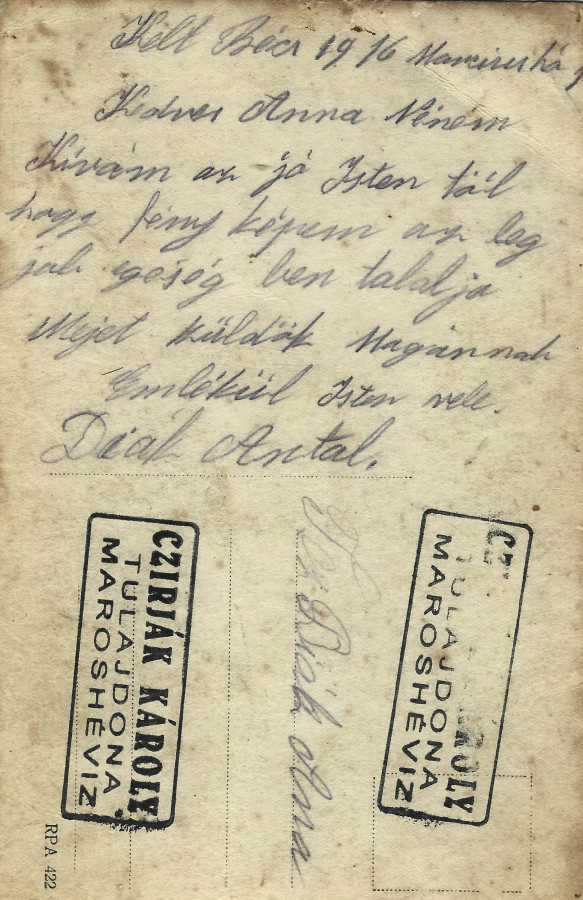 Kelt Bécs 1916 Marciushó
Kedves Anna Néném
Kívánom az jó Isten től
hogy fény képem az leg
job egéség ben talalja
Mejet küldök Magánnak
Emlékül Isten vele.
Deák Antal.
CZIRJÁK KÁROLY
TULAJDONA
MAROSHÉVIZ
Deák Anna
CZ ROLY
TULAJDONA
MAROSHÉVIZ
RPA 422